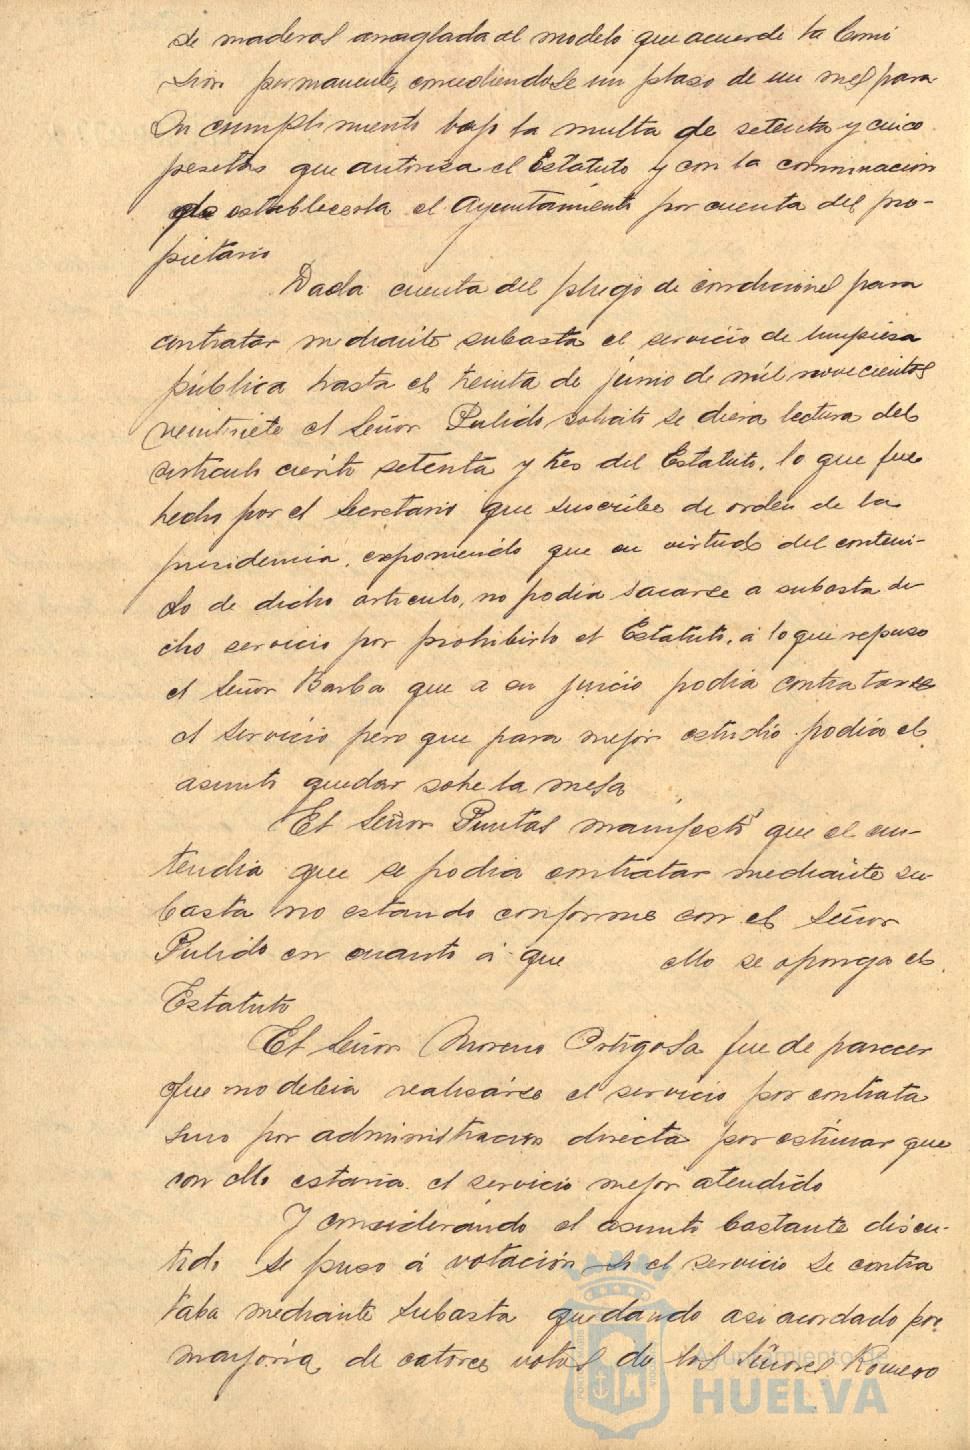 de maderas arreglada al modelo que acuerde la Comi
sion permanente, concediendose un plazo de un mes para
su cumplimiento bajo la multa de setenta y cinco
pesetas que autoriza el Estatuto y con la conminacion
de establecerla el Ayuntamiento por cuenta del pro-
pietario
Dada cuenta del pliego de condiciones para
contratar mediante subasta el servicio de limpieza
pública hasta el treinta de junio de mil novecientos
veintisiete el Señor Pulido solicitó se diera lectura del
articulo ciento setenta y tres del Estatuto, lo que fue
hecho por el Secretario que suscribe de orden de la
presidencia, exponiendo que en virtud del conteni-
do de dicho articulo, no podia sacarse a subasta di-
cho servicio por prohibirlo el Estatuto, á lo que repuso
el Señor Barba que a su juicio podia contratarse
el servicio pero que para mejor estudio podia el
asunto quedar sobre la mesa
El Señor Puntas manifestó que el en-
tendia que se podia contratar mediante su-
basta no estando conforme con el Señor
Pulido en cuanto á que ello se oponga el
Estatuto
El Señor Moreno Ortigosa fue de parecer
que no debia realizarse el servicio por contrata
sino por administracion directa por estimar que
con ello estaria el servicio mejor atendido
Y considerando el asunto bastante discu-
tido se puso á votación si el servicio se contra
taba mediante subasta quedando asi acordado por
mayoria de catorce votos de los Señores Romero
Ayuntamiento de
HUELVA